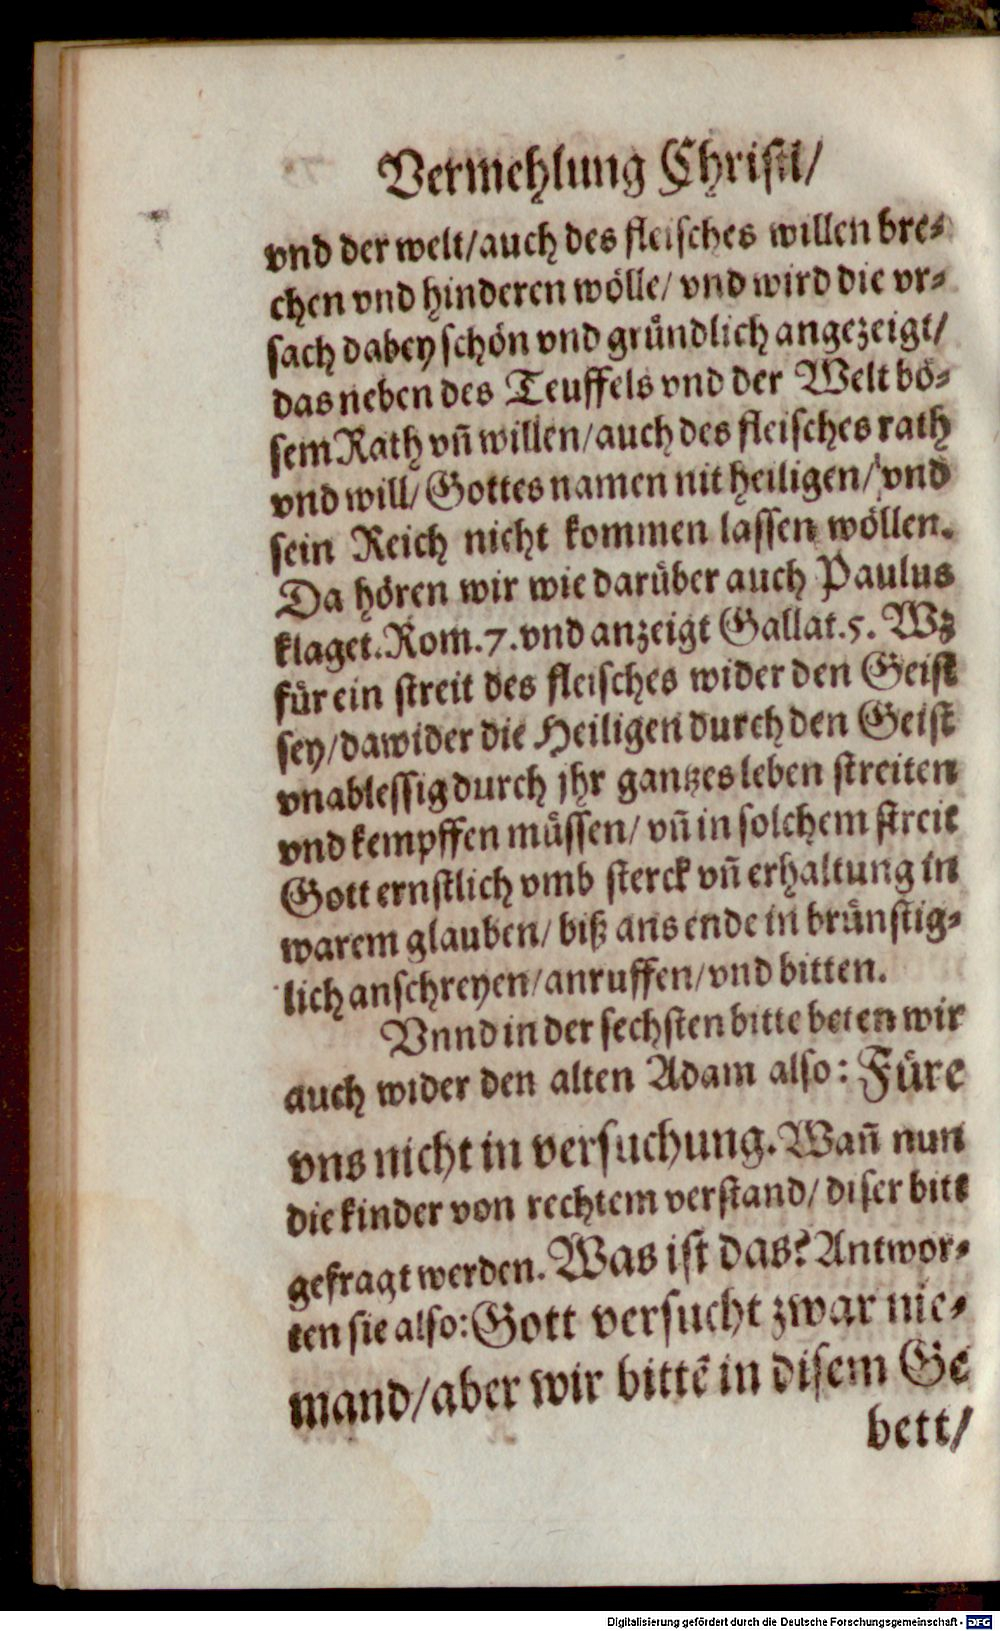 Vermehlung Christi/
vnd der welt/auch des fleisches willen bre⸗
chen vnd hinderen wölle/ vnd wird die vr⸗
sach dabey schön vnd gründlich angezeigt/
das neben des Teuffels vnd der Welt bö⸗
sem Rath vñ willen/auch des fleisches rath
vnd will/ Gottes namen nit heiligen/ vnd
sein Reich nicht kommen lassen wöllen.
Da hören wir wie darüber auch Paulus
klaget. Rom. 7. vnd anzeigt Gallat. 5. Wz
für ein streit des fleisches wider den Geist
sey/dawider die Heiligen durch den Geist
vnablessig durch jhr gantzes leben streiten
vnd kempffen müssen/ vñ in solchem streit
Gott ernstlich vmb sterck vñ erhaltung in
warem glauben/ biß ans ende in brünstig⸗
lich anschreyen/anruffen/vnd bitten.
Vnnd in der sechsten bitte beten wir
auch wider den alten Adam also: Füre
vns nicht in versuchung. Wañ nun
die kinder von rechtem verstand/ diser bitt
gefragt werden. Was ist das? Antwor⸗
ten sie also: Gott versucht zwar nie⸗
mand/aber wir bittẽ in disem Ge
bett/
Digitalisierung gefördert durch die Deutsche Forschungsgemeinschaft - DFG